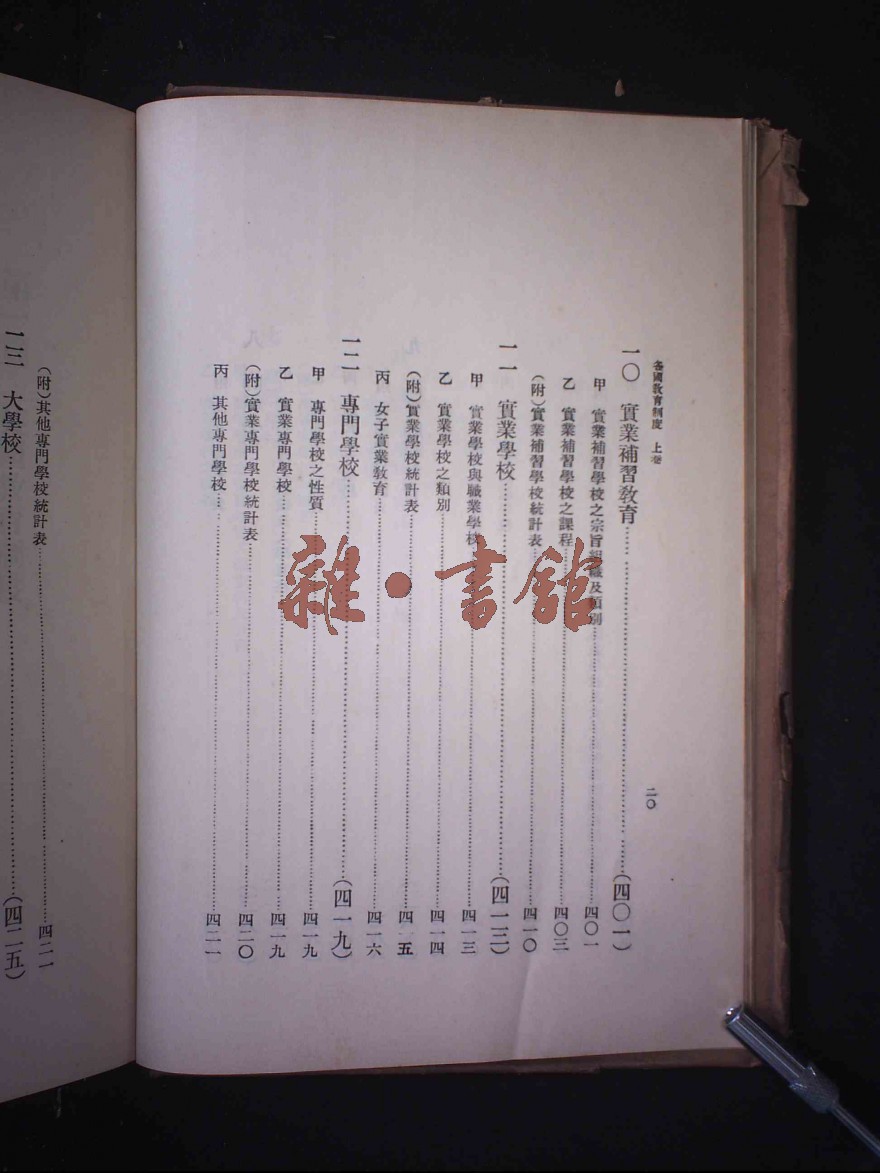 各國教育制度 上卷
二〇
一〇 實業補習教育……(四〇一)
甲 實業補習學校之宗旨組織及類別……四〇一
乙 實業補習學校之課程……四〇三
(附)實業補習學校統計表……四一〇
一一 實業學校……(四一三)
甲 實業學校與職業學校……四一三
乙 實業學校之類別……四一四
(附)實業學校統計表……四一五
丙 女子實業教育……四一六
一二 專門學校……(四一九)
甲 專門學校之性質……四一九
乙 實業專門學校……四一九
(附)實業專門學校統計表……四二〇
丙 其他專門學校……四二一
(附)其他專門學校統計表……四二一
一三 大學校……(四二五)
雜·書館